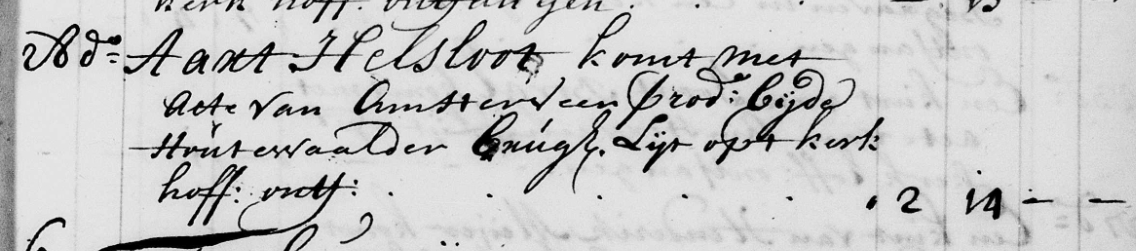 kerk hoff. ontfangen . . . — 13 —
Ad.o = Aart Helsloot komt met
Acte van Amsterveen prod.o: bijde
Houtewaalder brugh. Lijt opt kerk
hoff: ontf: . . . . . . 2 14 — —